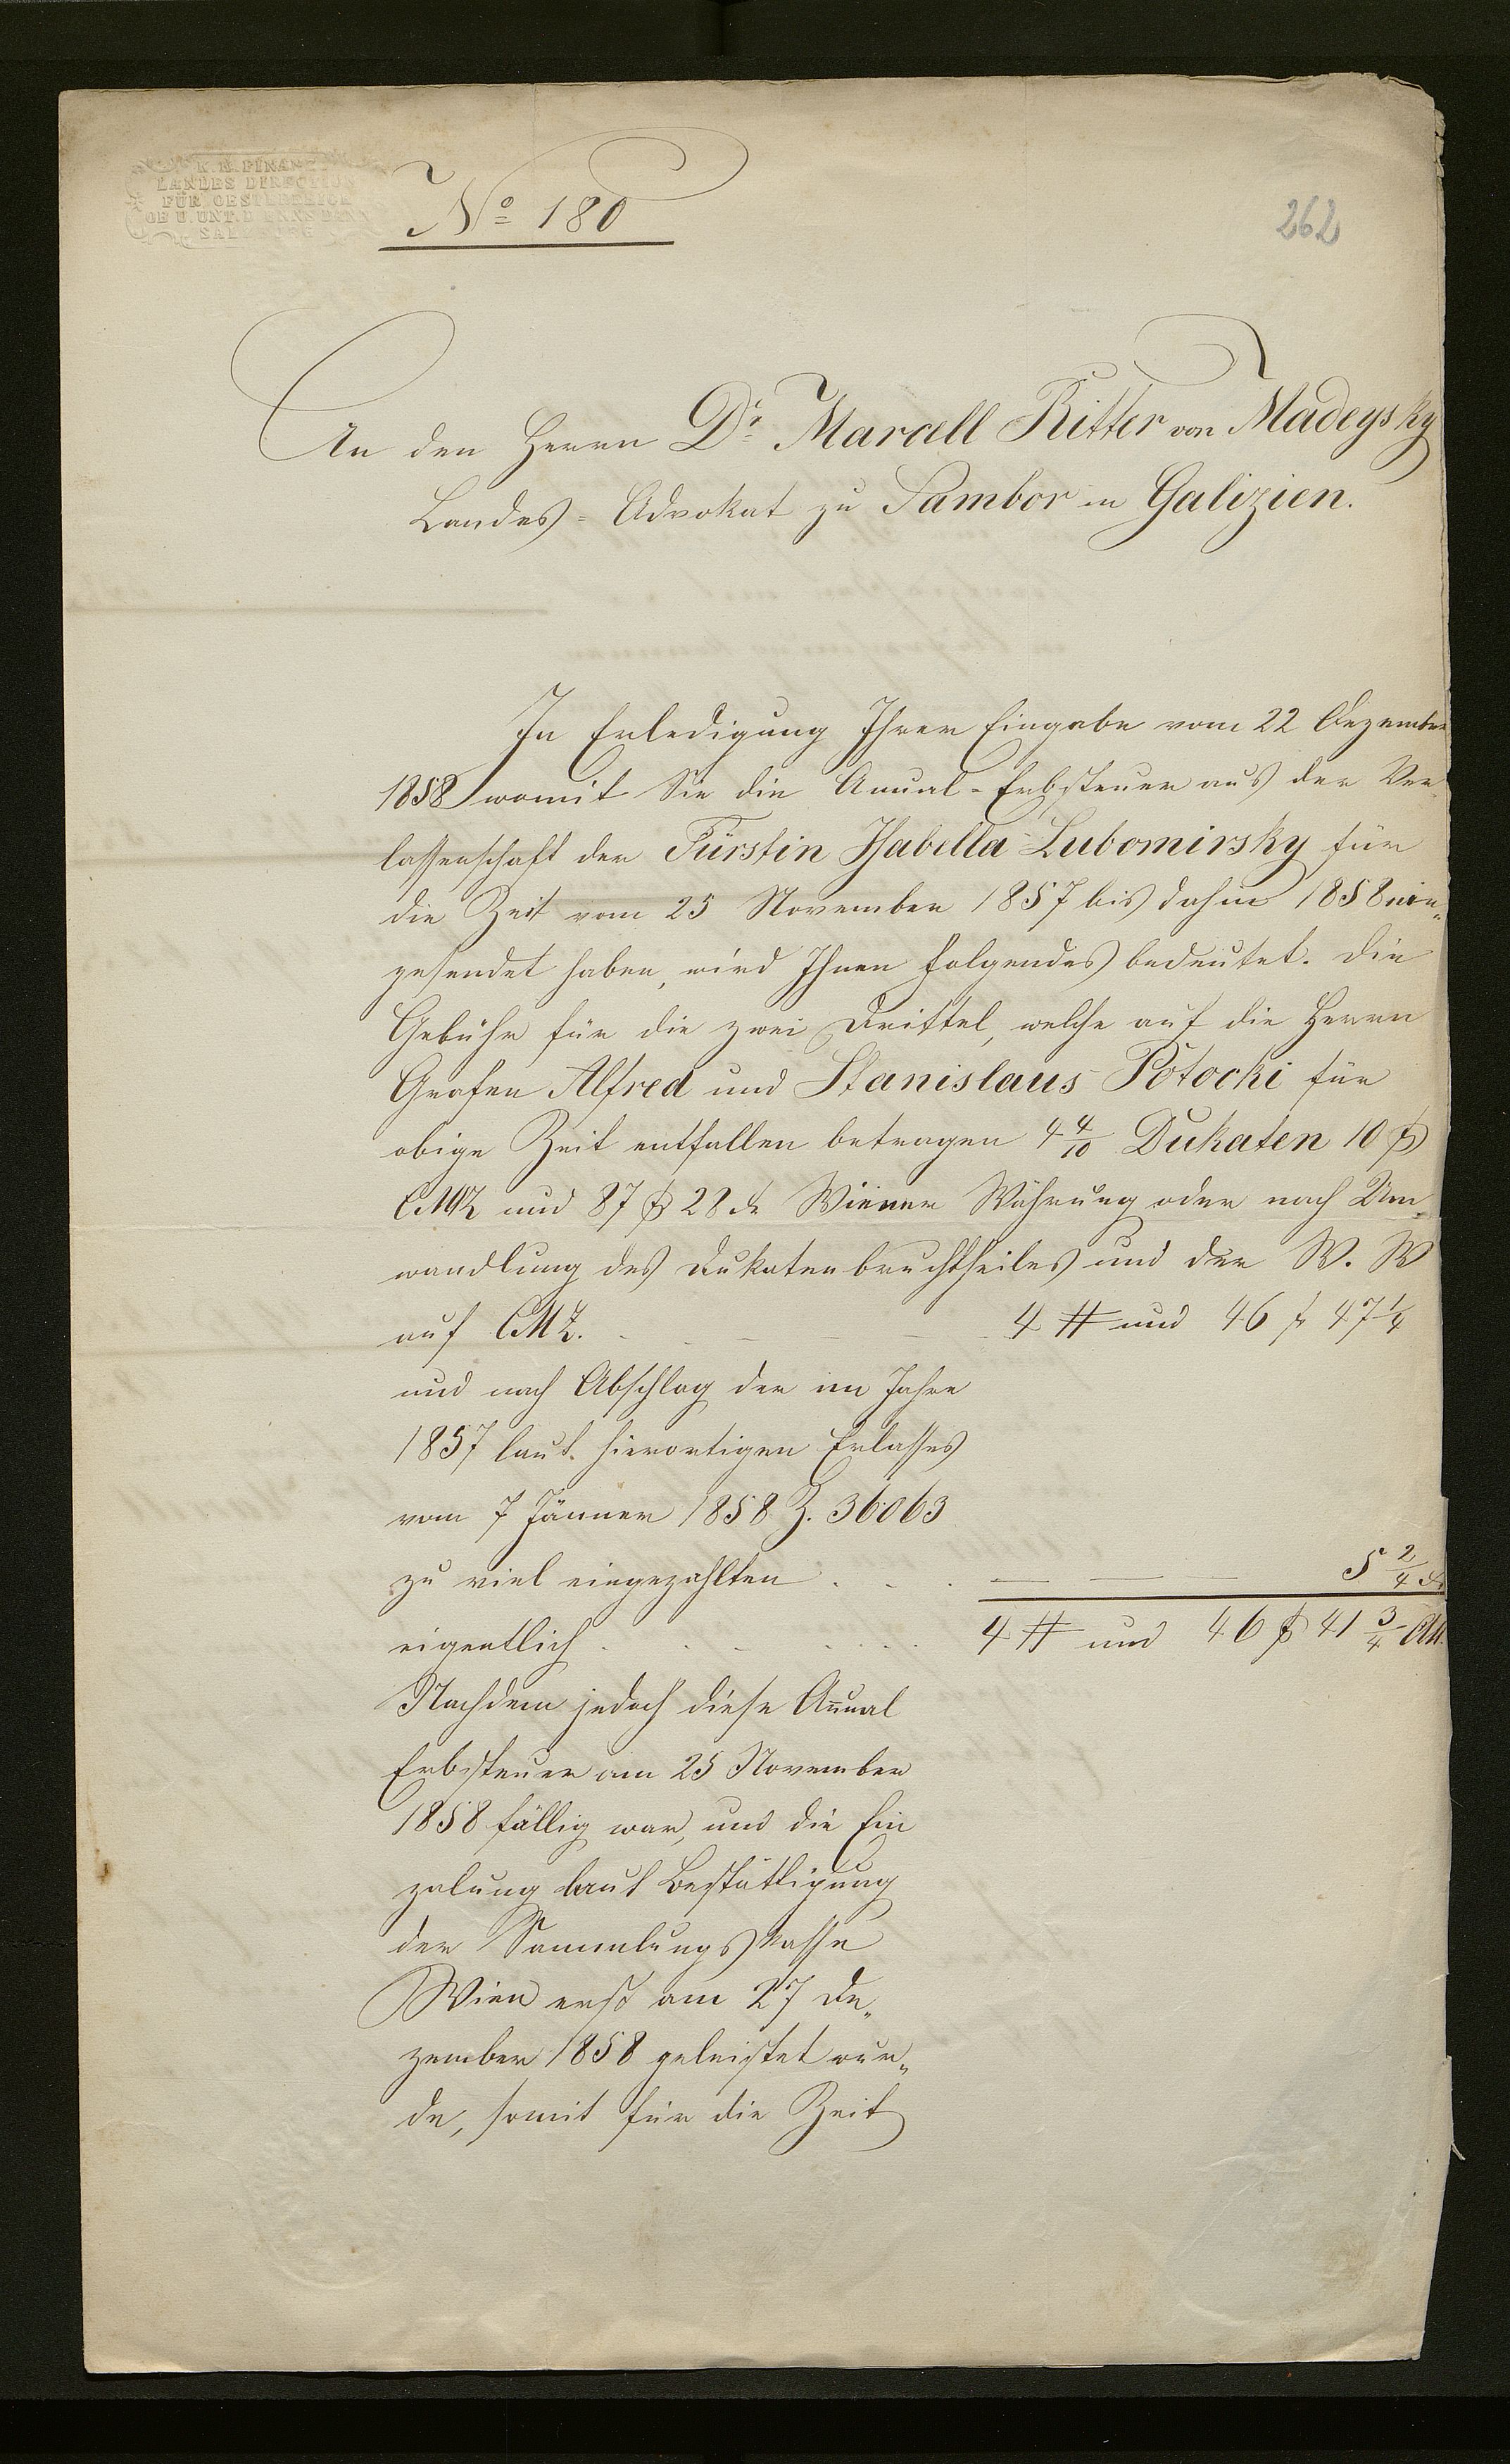 K. K. FINANZ
LANDES DIRECTION
FÜR OESTERREICH
OB U. UNT. D. ENNS UND
SALZBURG
No 180
262
An den Herrn Dr. Marcell Ritter von Madeysky
Landes-Advokat zu Sambor in Galizien.
In Erledigung Ihrer Eingabe vom 22 Dezember
1858 womit Sie die Annual-Erbsteuer aus der Ver
lassenschaft der Fürstin Isabella Lubomirsky für
die Zeit vom 25 November 1857 bis dahin 1858 ein„
gesendet haben, wird Ihnen Folgendes bedeutet. Die
Gebühr für die zwei Drittel, welche auf die Herrn
Grafen Alfred und Stanislaus Potocki für
obige Zeit entfallen betragen 4 4/10 Dukaten 10 f
CMz und 87 f 28 xr Wiener Währung oder nach Um„
wandlung des Dukatenbruchtheiles und der W. W
auf CMz. 4 # und 46 f 47 1/4
und nach Abschlag der im Jahre
1857 laut hierortigen Erlasses
vom 7 Jänner 1858 Z. 36063
zu viel eingezahlten . . . 5 2/4 xr
eigentlich . . . . 4 # und 46 f 41 3/4 CM.
Nachdem jedoch diese Anual
Erbsteuer am 25 November
1858 fällig war, und die Ein
zalung laut Bestättigung
der Sammlungskasse
Wien erst am 27 De„
zember 1858 geleistet wur„
de, somit für die Zeit